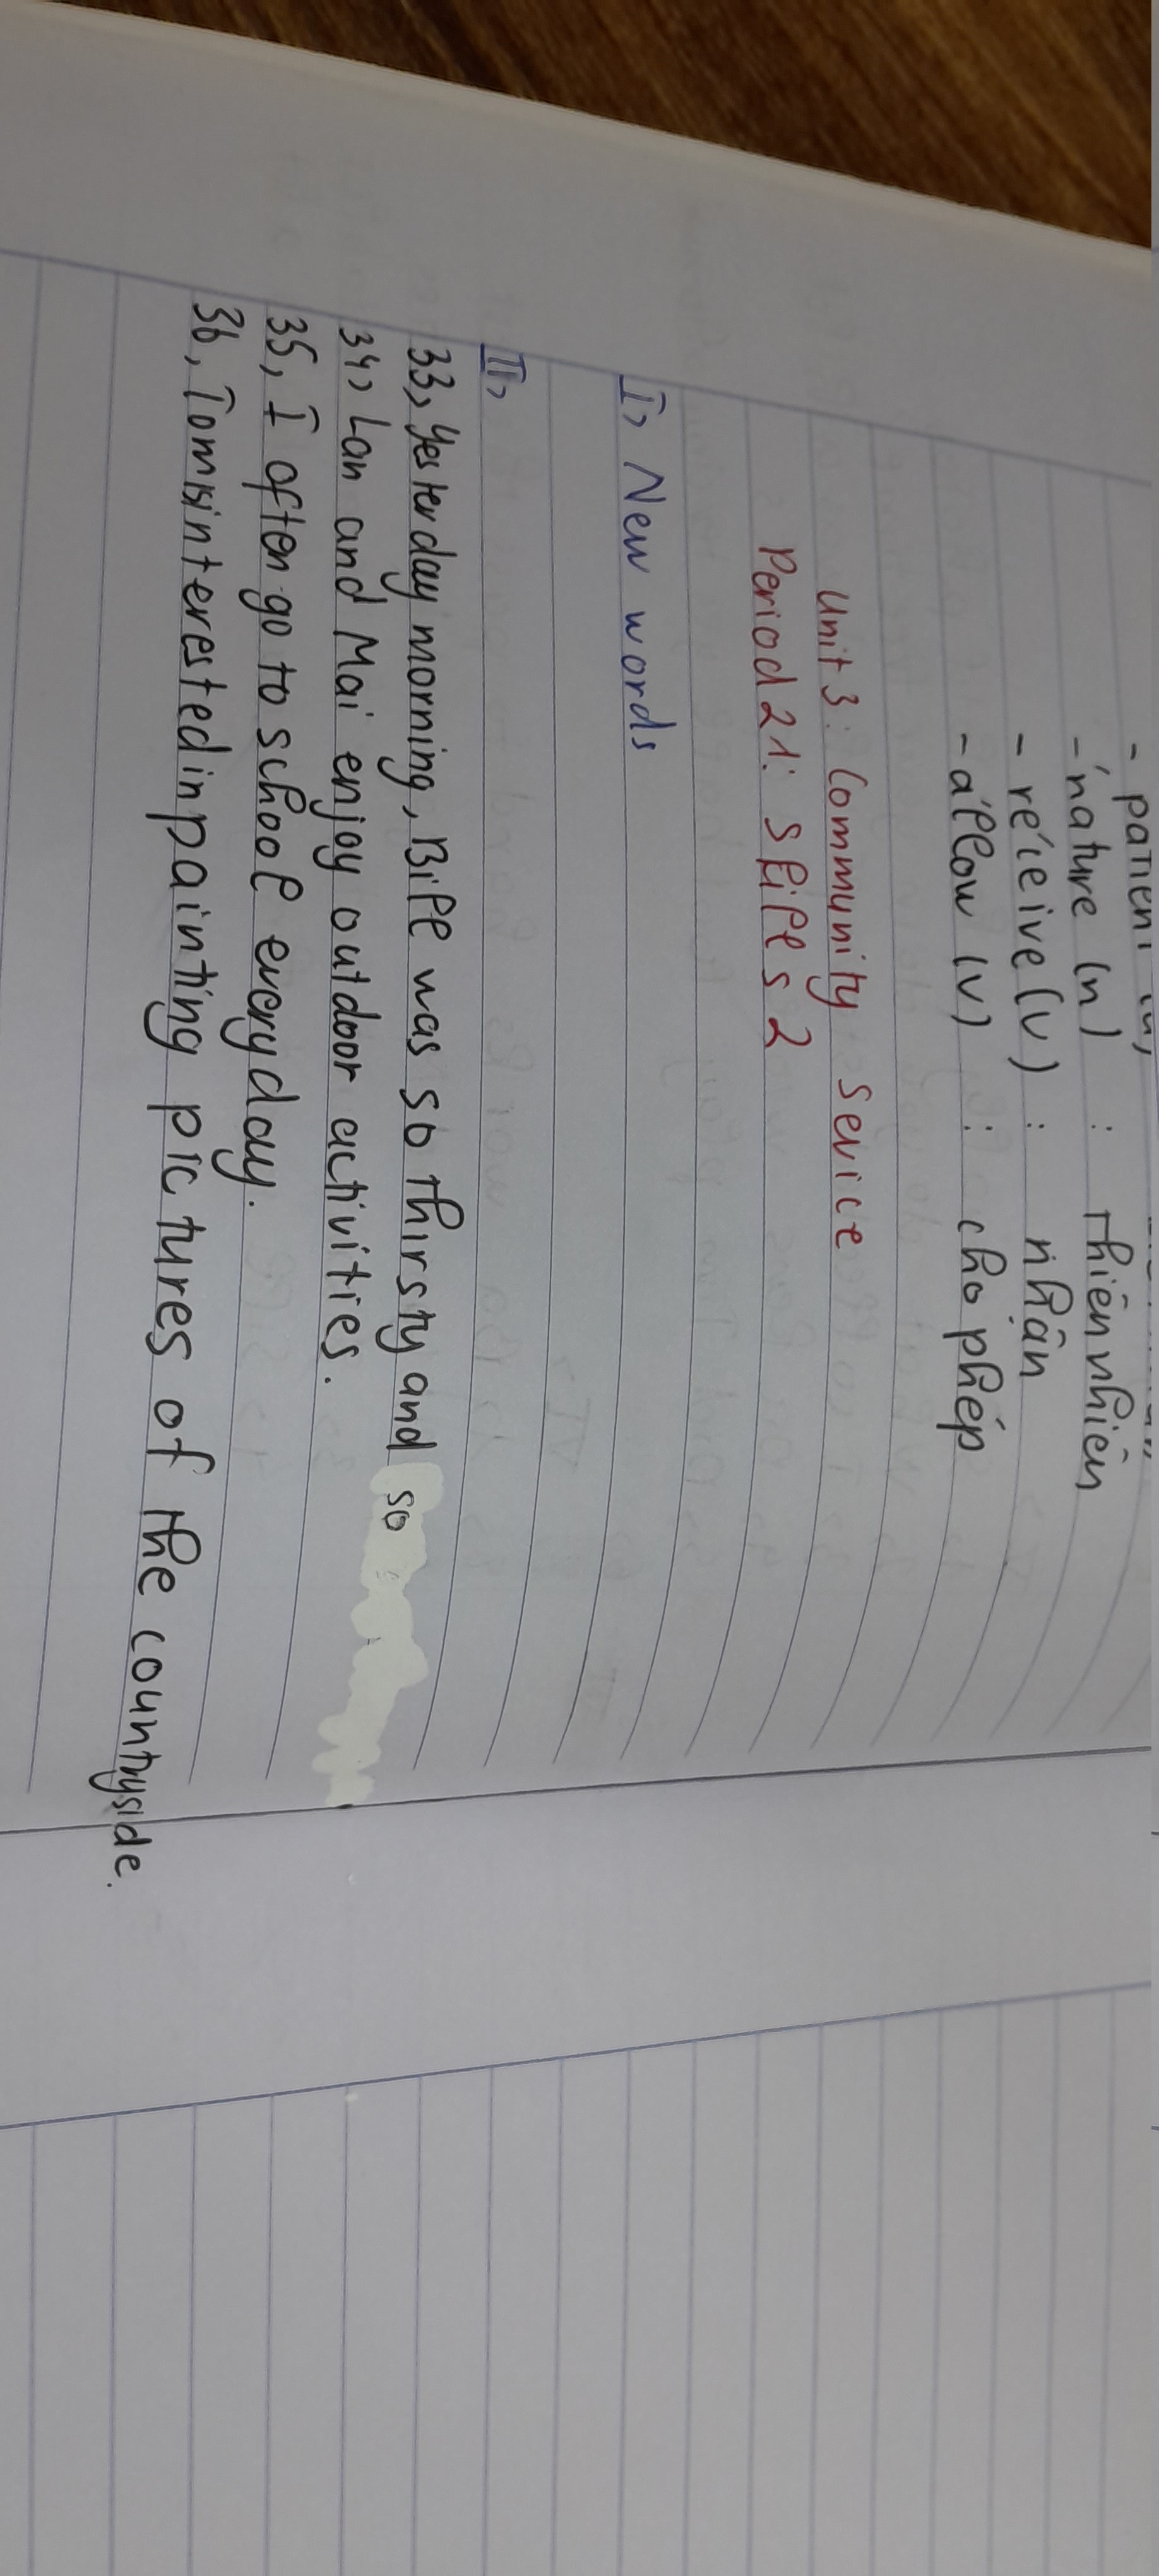 - patient
- 'nature (n) : thiên nhiên
- re'ceive (v) : nhận
- a'llow (v) : cho phép
Unit 3: Community sevice
Period 21: Skills 2
I, New words
II,
33, Yesterday morning, Bill was so thirsty and so
34, Lan and Mai enjoy outdoor activities.
35, I often go to school everyday.
36, Tom is interested in painting pictures of the countryside.